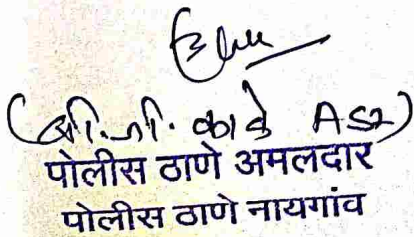 काळे ASI)
पोलीस ठाणे अमलदार
पोलीस ठाणे नायगांव